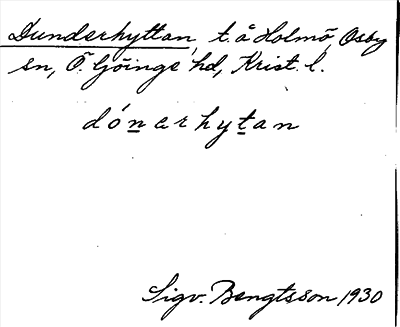 Dunderhyttan, t. å Holmö, Osby
sn, Ö. Göinge hd, Krist. l.
dónerhytan
Sigv. Bengtsson 1930